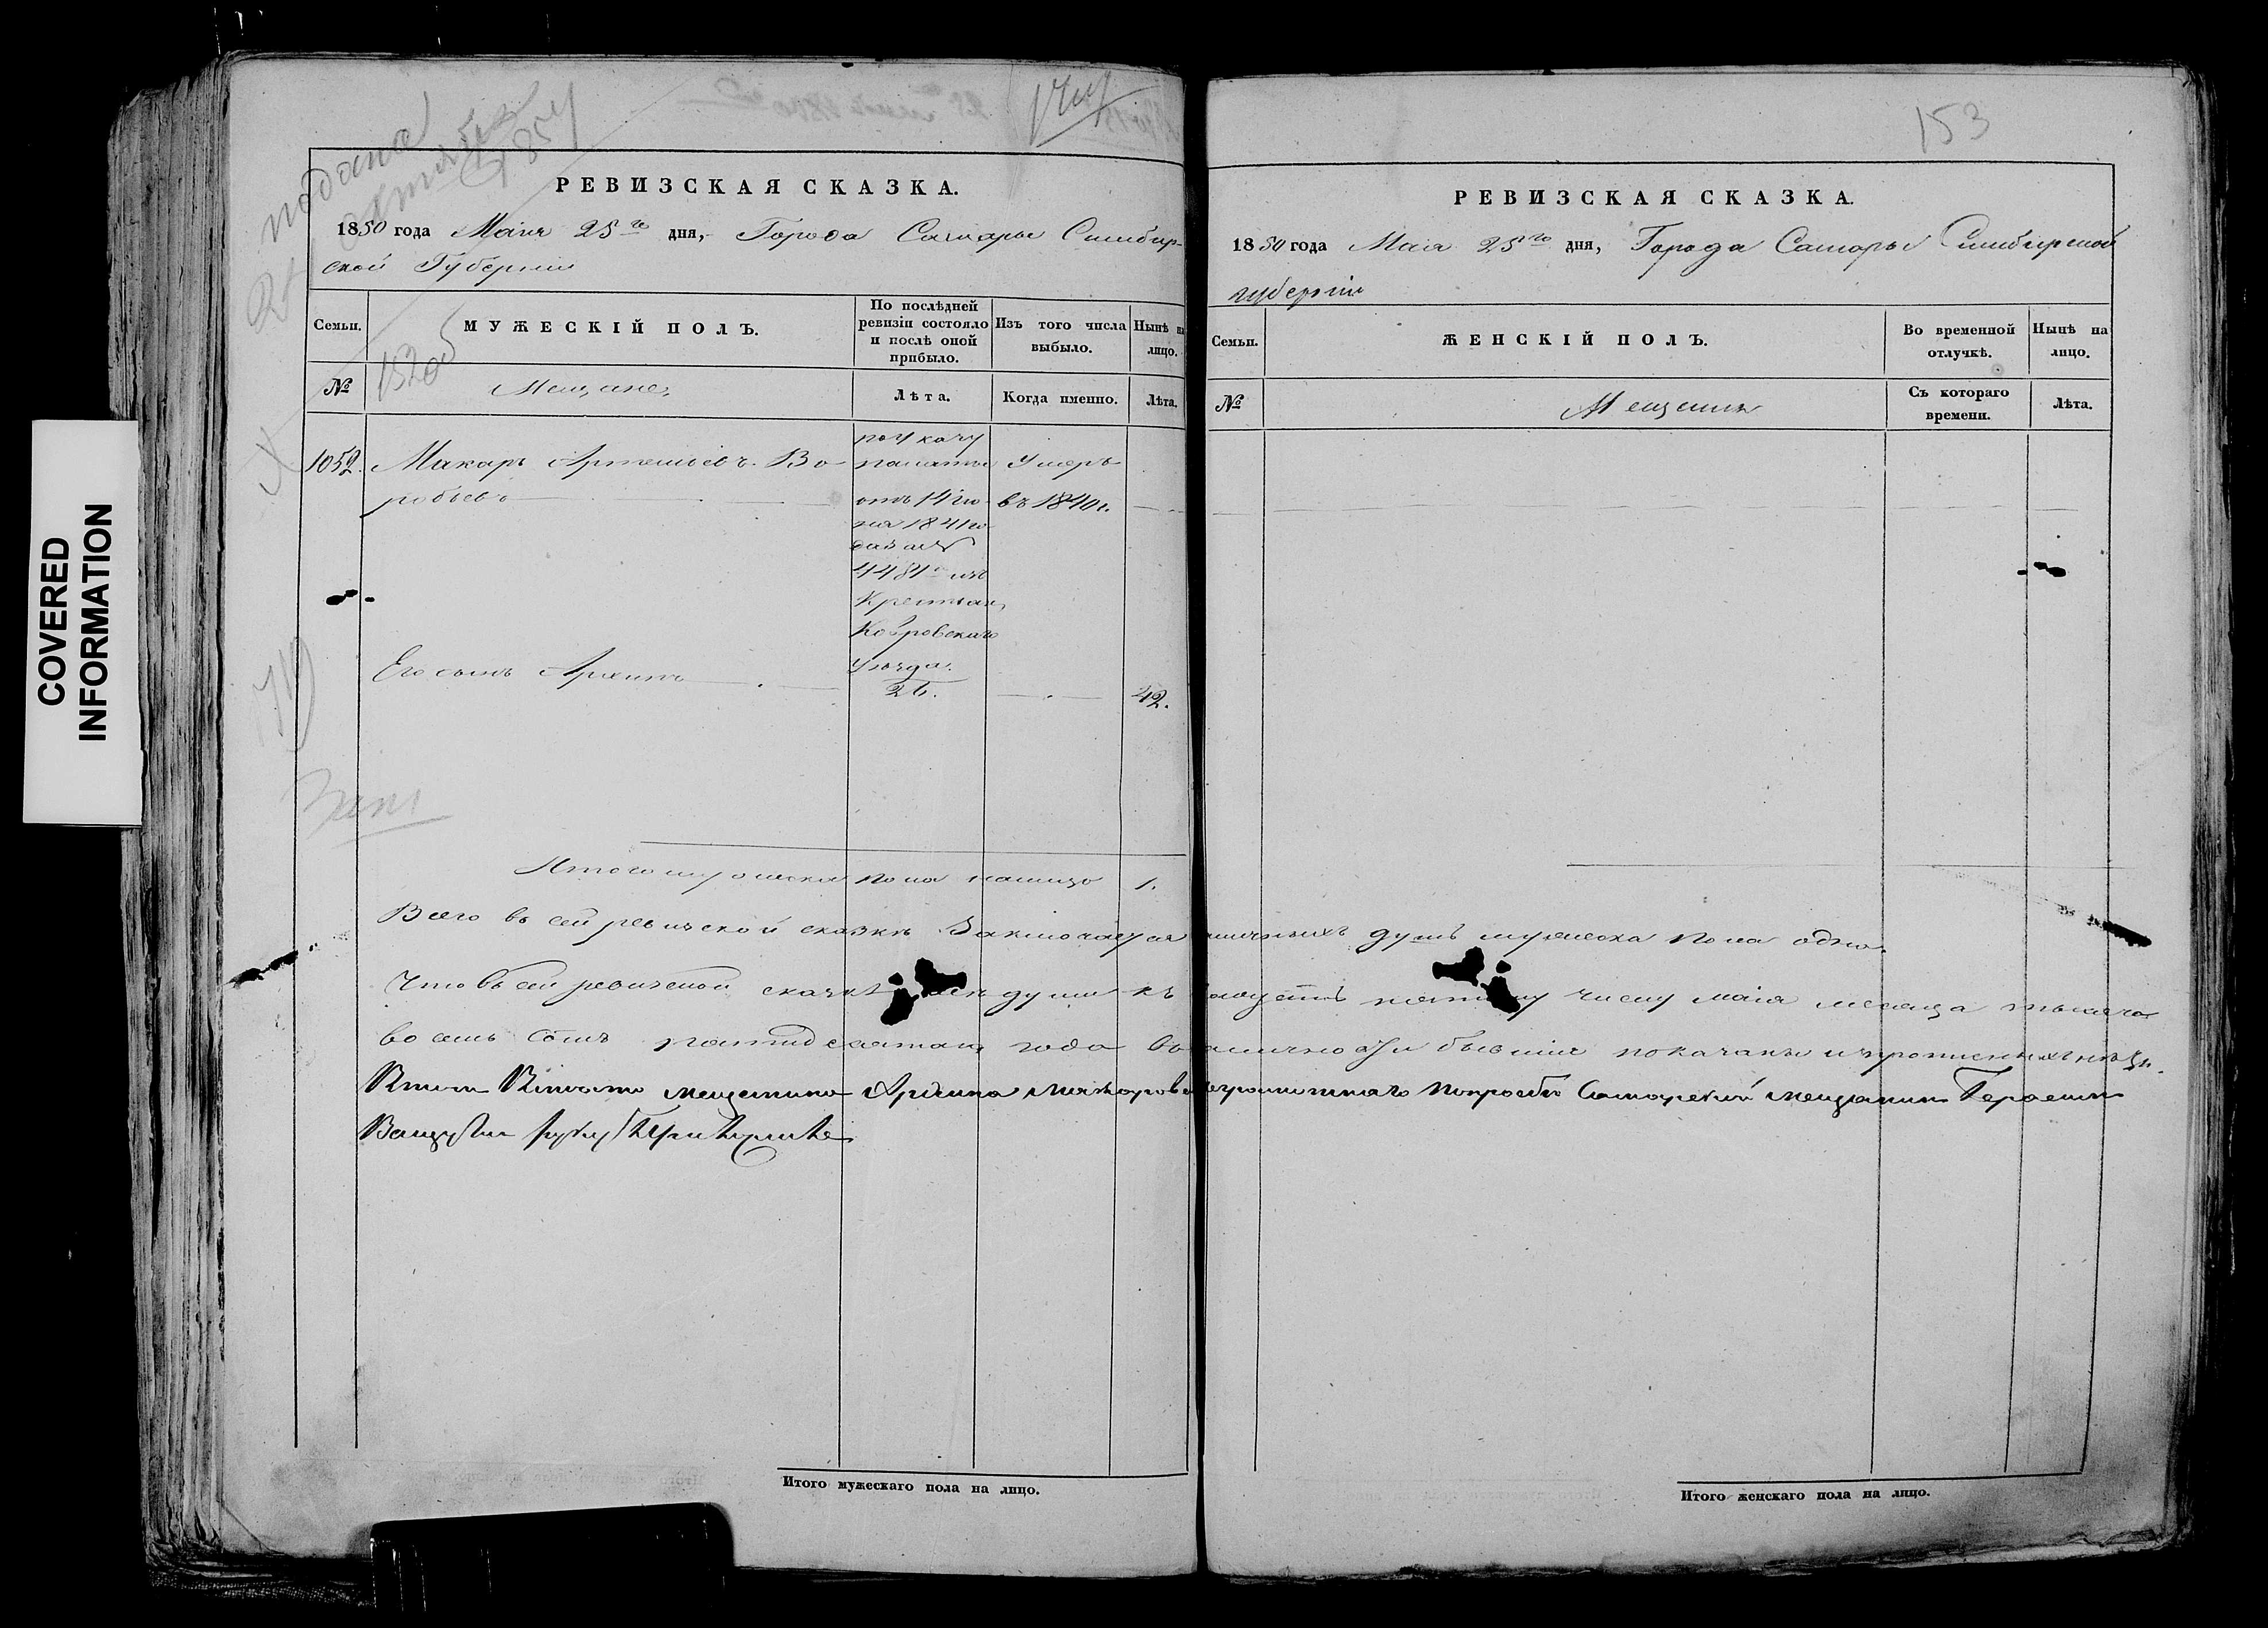 COVERED
INFORMATION
подана
октября
1857
153
РЕВИЗСКАЯ СКАЗКА.
1850 года Маiя 25го дня, Города Самары Симбир-
ской Губернiи
Семьи.
МУЖЕСКІЙ ПОЛЪ.
По послѣдней
ревизіи состояло
и послѣ оной
прибыло.
Изъ того числа
выбыло.
Нынѣ на
лицо.
№
Мещане
Лѣта.
Когда именно.
Лѣта.
1052.
Макаръ Артемьевъ Во-
робьевъ
по указу
палаты
отъ 14 iю-
ня 1841 го-
да за №
4484 изъ
Крестьян
Ковровскаго
Уѣзда.
Умеръ
въ 1840 г.
Его сынъ Архипъ
26.
42.
Итого мужеска пола налицо 1.
РЕВИЗСКАЯ СКАЗКА.
1850 года Маiя 25го дня, Города Самары Симбирской
губернiи
Семьи.
ЖЕНСКІЙ ПОЛЪ.
Во временной
отлучкѣ.
Нынѣ на
лицо.
№
Мещеня
Съ котораго
времени.
Лѣта.
Всего въ сей ревизской сказкѣ Заключается наличныхъ душъ мужеска пола одна.
Что въ сей ревизской сказкѣ всѣ души къ двадцать пятому числу маiя месеца тысяча
восемь сотъ пятидесятаго года въ наличности бывшiе показаны и прописных нѣтъ.
мещенина Архипа Макарова неграмотнаго по просьбѣ Самарскiй мещанинъ Герасимъ
руку приложилъ
Итого мужескаго пола на лицо.
Итого женскаго пола на лицо.